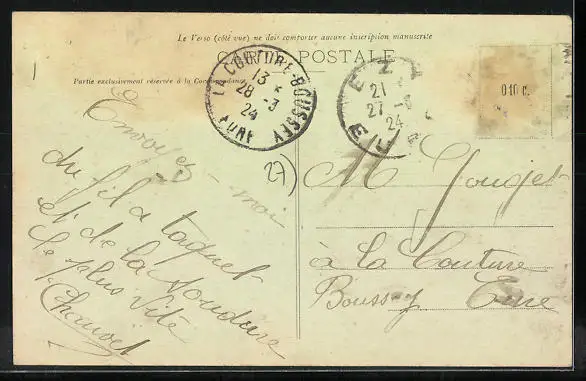 Le Verso (côté vue) ne doit comporter aucune inscription manuscrite
CARTE POSTALE
Partie exclusivement réservée à la Correspondance.
LA COUTURE-BOUSSEY
13 *
28 -3
24
EURE
EZY
21
27 -3
24
EURE
010 c.
27)
Envoyez-moi
du fil a taquet
et de la soudure
le plus vite
Chauvet
M Gouget
à la Couture
Boussey Eure